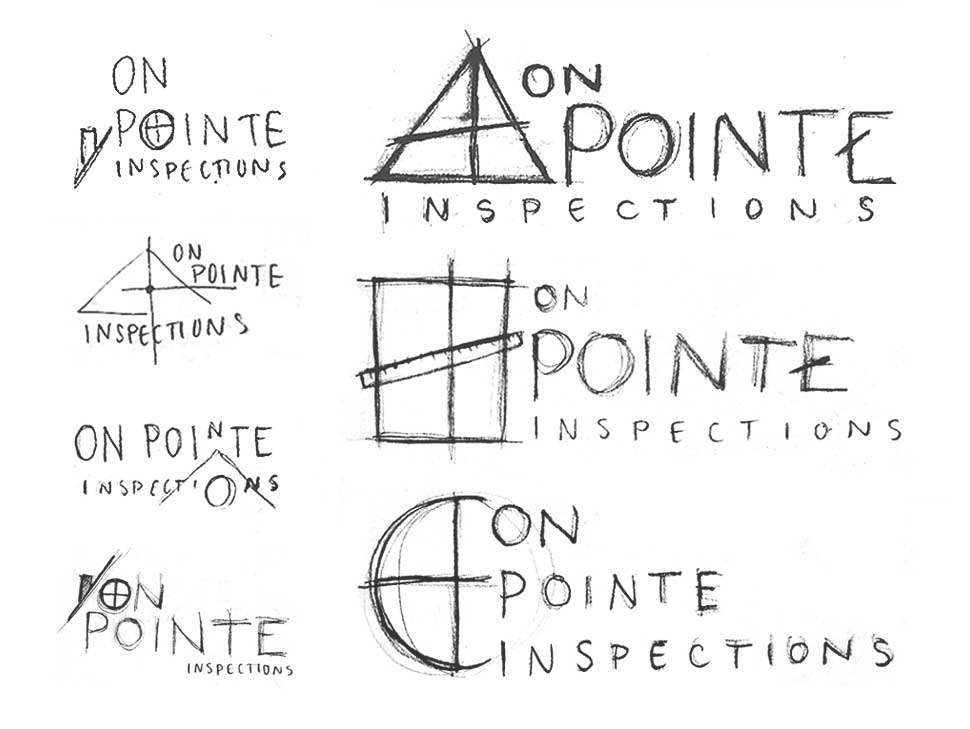 ON
POINTE
INSPECTIONS
ON
POINTE
INSPECTIONS
ON POINTE
INSPECTIONS
ON
POINTE
INSPECTIONS
ON
POINTE
INSPECTIONS
ON
POINTE
INSPECTIONS
ON
POINTE
INSPECTIONS